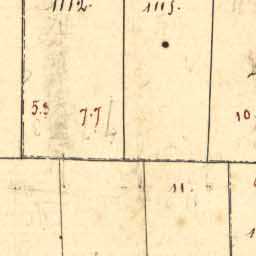 1112. 1113.
5.3 7.7 10
11.